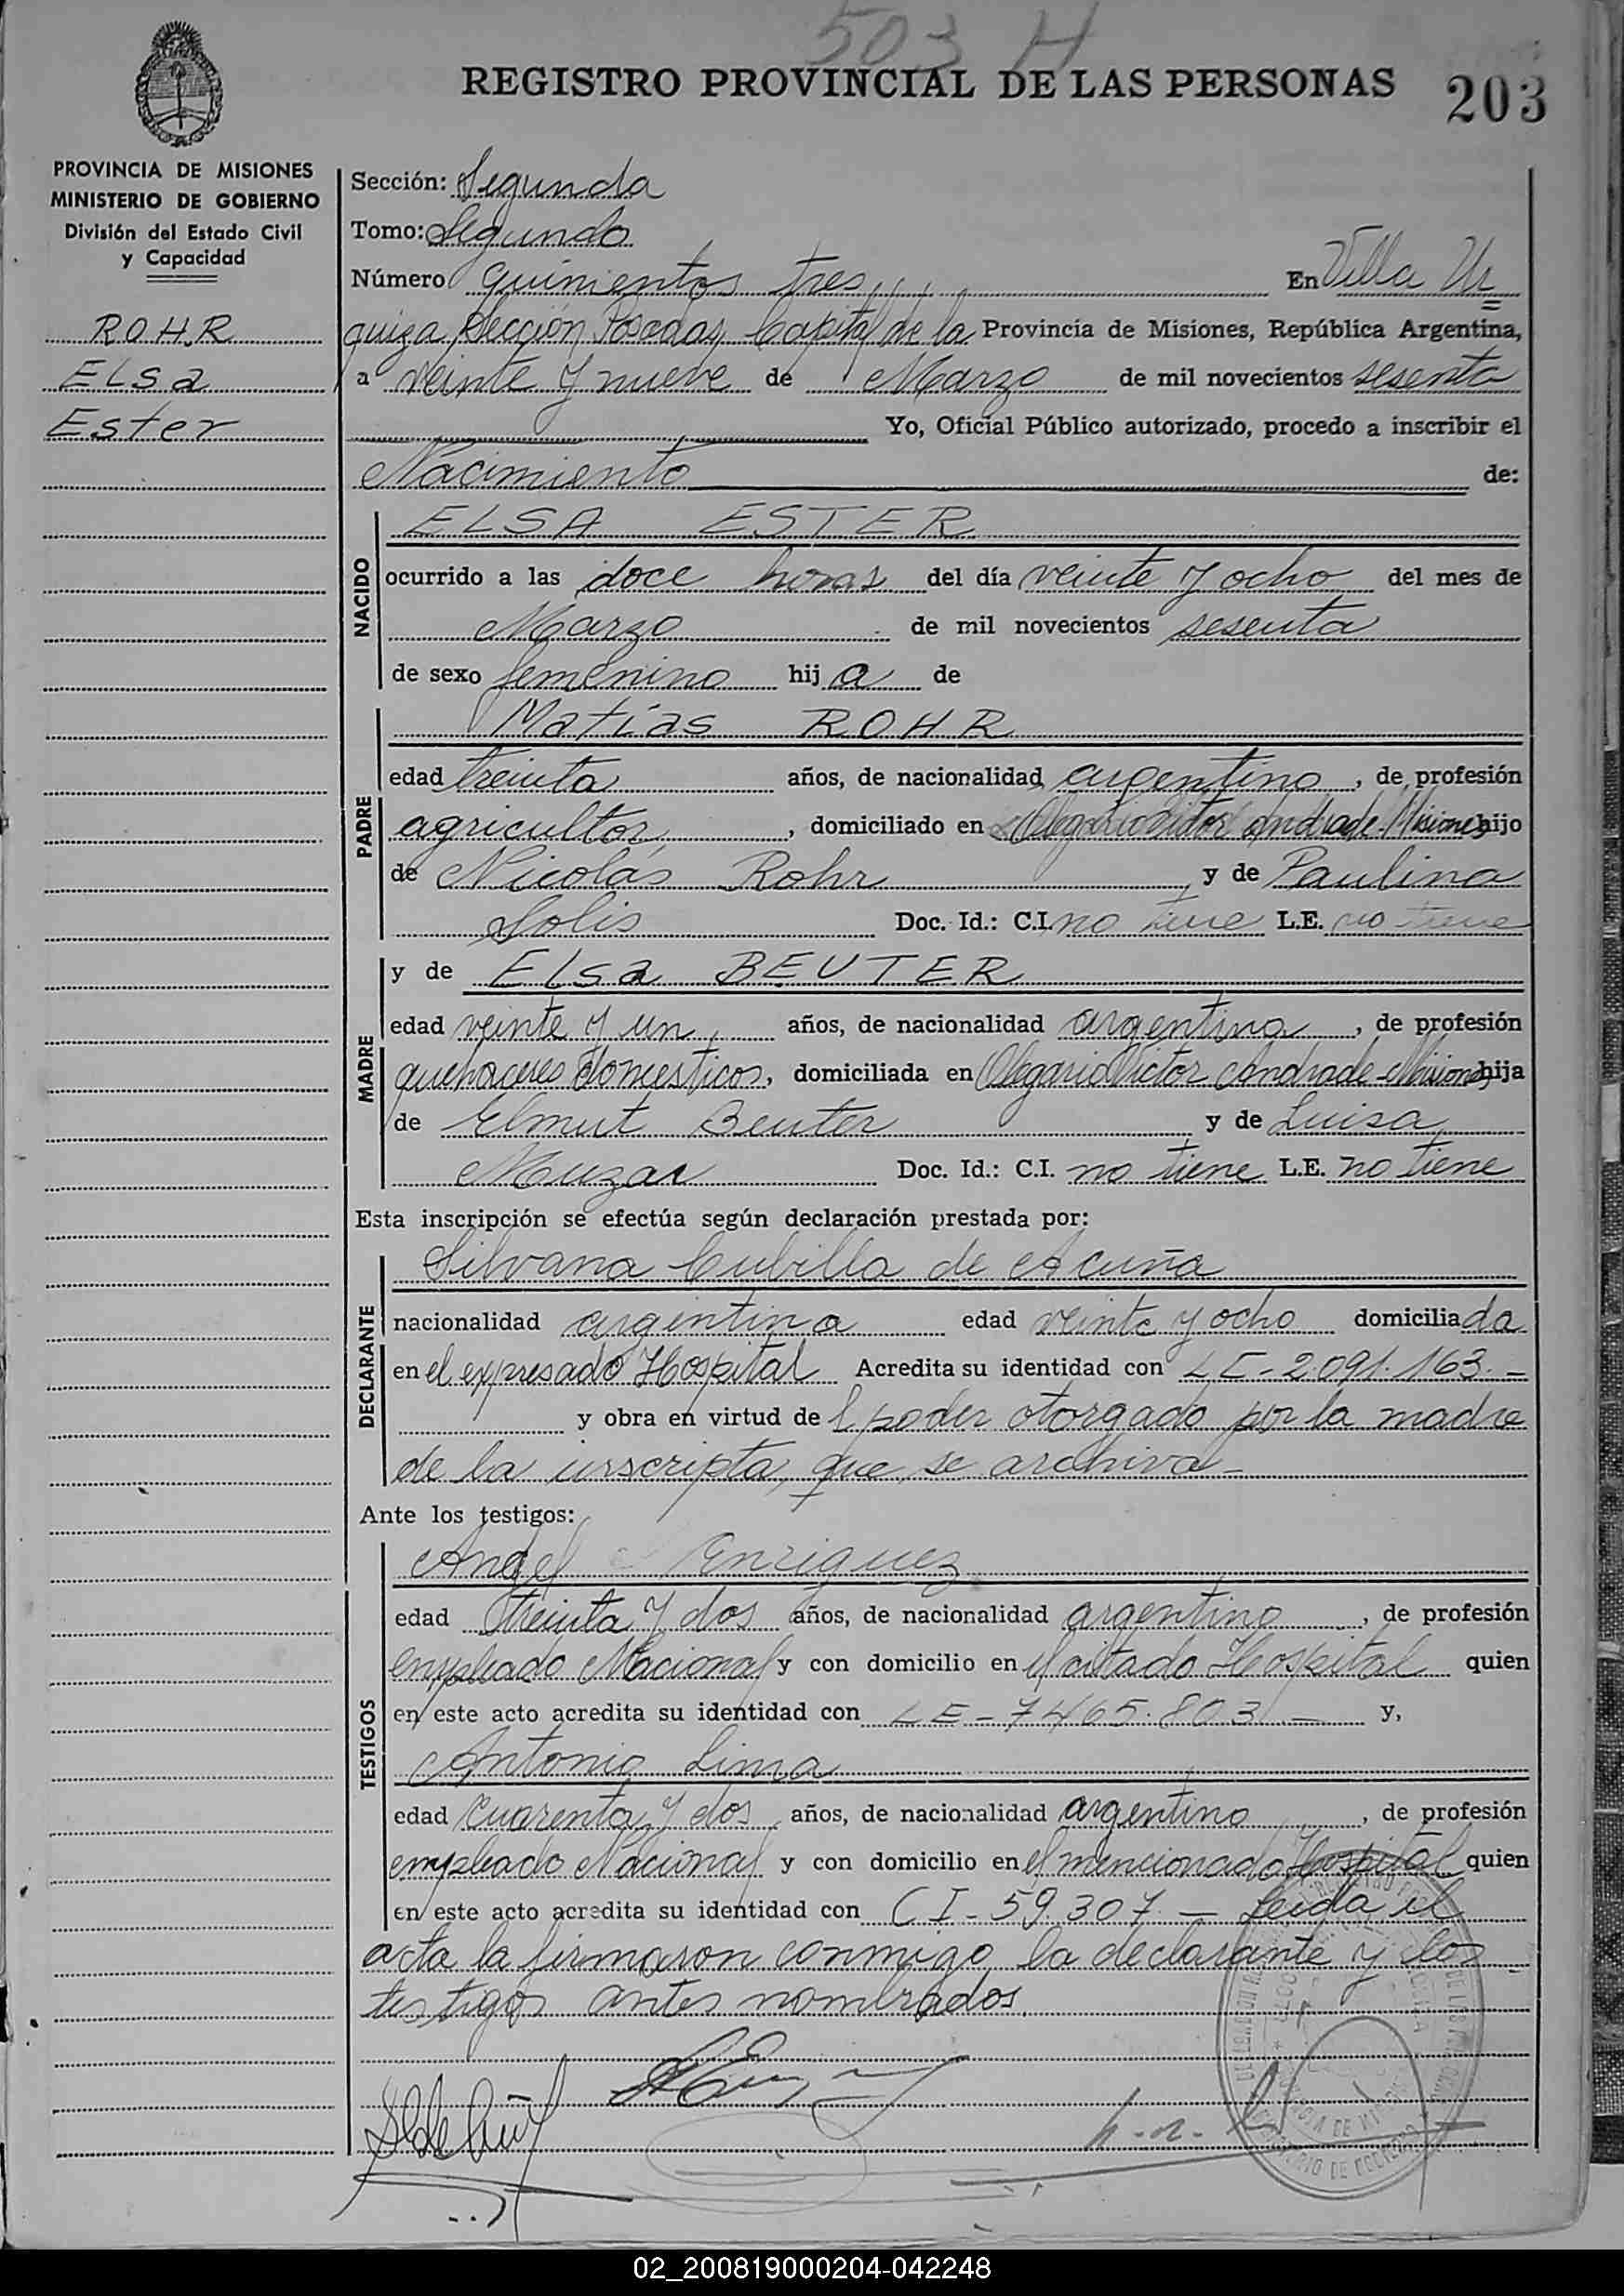 503 H
REGISTRO PROVINCIAL DE LAS PERSONAS 203
PROVINCIA DE MISIONES
MINISTERIO DE GOBIERNO
División del Estado Civil
y Capacidad
ROHR
ELSa
Ester
Sección: Segunda
Tomo: Segundo
Número quinientos tres En Villa Ur
quiza Sección Posadas Capital de la Provincia de Misiones, República Argentina,
a veinte y nueve de Marzo de mil novecientos sesenta
Yo, Oficial Público autorizado, procedo a inscribir el
Nacimiento de:
NACIDO
ELSA ESTER
ocurrido a las doce horas del día veinte y ocho del mes de
Marzo de mil novecientos sesenta
de sexo femenino hija de
PADRE
Matías ROHR
edad treinta años, de nacionalidad argentino, de profesión
agricultor, domiciliado en Olegario Víctor Andrade-Misiones hijo
de Nicolás Rohr y de Paulina
Solis Doc. Id.: C.I. no tiene L.E. no tiene
MADRE
y de ELsa BEUTER
edad veinte y un años, de nacionalidad argentina, de profesión
quehaceres domesticos, domiciliada en Olegario Victor Andrade-Misiones hija
de Elmut Beuter y de Luisa
Doc. Id.: C.I. no tiene L.E. no tiene
Esta inscripción se efectúa según declaración prestada por:
DECLARANTE
Silvana Cubilla de Acuña
nacionalidad argentina edad veinte y ocho domiciliada
en el expresado Hospital Acredita su identidad con LC-2.091.163.-
y obra en virtud del poder otorgado por la madre
de la inscripta, que se archiva-
Ante los testigos:
TESTIGOS
Angel Enriquez
edad treinta y dos años, de nacionalidad argentino, de profesión
empleado Nacional y con domicilio en el citado Hospital quien
en este acto acredita su identidad con LE-7465.803 - y,
Antonio Lima
edad cuarenta y dos años, de nacionalidad argentino, de profesión
empleado Nacional y con domicilio en el mencionado Hospital quien
en este acto acredita su identidad con CI-59.307.- Leida el
acta la firmaron conmigo la declarante y los
testigos antes nombrados.
02_200819000204-042248